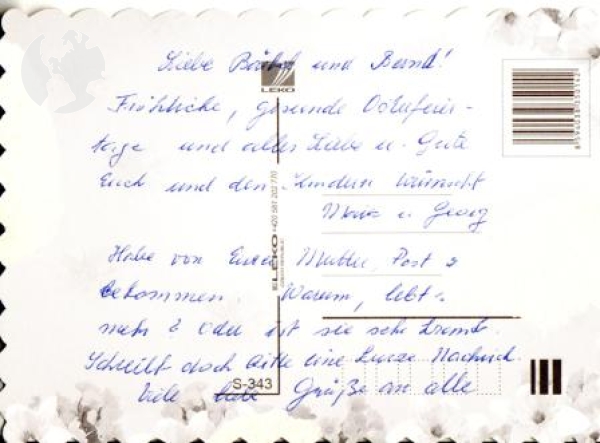 Liebe Bärbel und Bernd!
LEKO
Fröhliche, gesunde Osterfeier-
tage und alles Liebe u. Gute
Euch und den Kindern wünscht
u. Georg
Habe von Eurer Mutter, Post
bekommen. Warum, lebt
mehr? Oder ist sie sehr krank.
Schreibt doch bitte eine kurze Nachricht.
Viele Grüße an alle
S-343
ELEKO +420 581 202 770
CZECH REPUBLIC